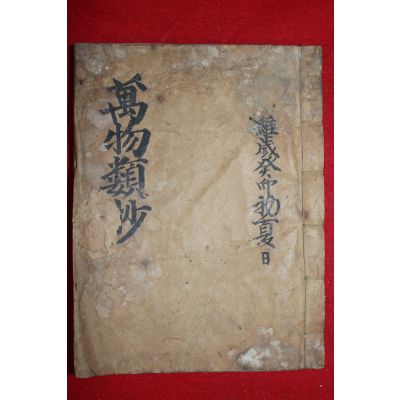 維歲癸卯初夏日
萬物類沙